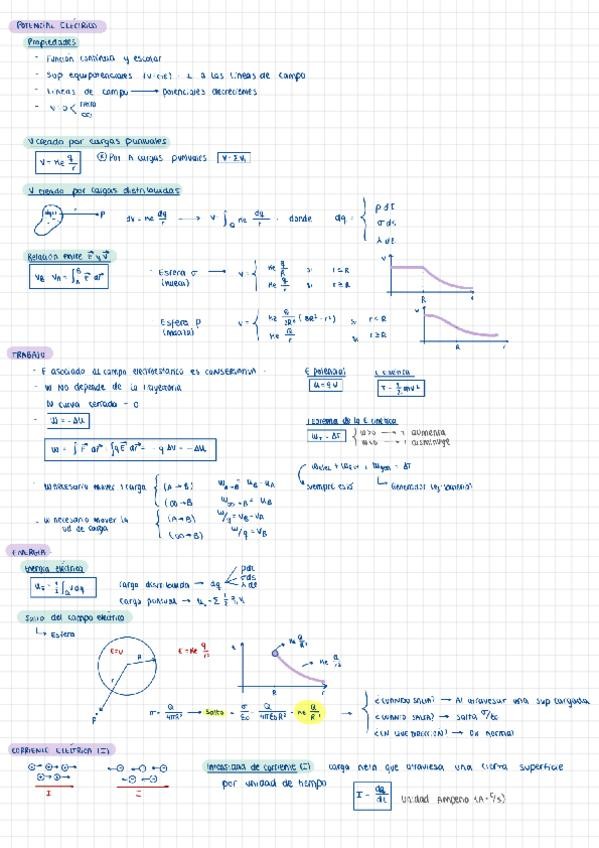 POTENCIAL ELÉCTRICO
Propiedades
- Función continua y escalar
- Sup equipotenciales (V=cte) · ⊥ a las líneas de campo
- Líneas de campo → potenciales decrecientes
- V=0 < tierra
∞
V creado por cargas puntuales
V = Ke q/r
Por n cargas puntuales V = Σ Vi
V creado por cargas distribuidas
dV = Ke dq/r → V = ∫Q Ke dq/r , donde dq = { ρ dτ
σ ds
λ dl
Relación entre E y V
Esfera σ (hueca) → V = { Ke q/R si r≤R
Ke q/r si r≥R
Esfera ρ (maciza) V = { Ke Q/2R³ (3R²-r²) si r<R
Ke Q/r si r≥R
TRABAJO
- F asociado al campo electrostático es CONSERVATIVA
- W NO depende de la trayectoria
W curva cerrada = 0
- W = -ΔU
W = ∫ F dr = ∫ qE dr = - q ΔV = -ΔU
E potencial
U = qV
E cinética
T = 1/2 mv²
Teorema de la E cinética
WT = ΔT { W>0 → T aumenta
W<0 → T disminuye
siempre está
- W necesario mover 1 carga { (A→B) W A→B = UB - UA
(∞→B) W ∞→B = UB
- W necesario mover la ud de carga { (A→B) W/q = VB - VA
(∞→B) W/q = VB
ENERGÍA
Energía eléctrica
carga distribuida → dq < ρ dτ
σ ds
λ dl
carga puntual →
Salto del campo eléctrico
↳ Esfera
E=0
R
r
P
E = Ke q/r²
Ke Q/R²
σ = Q/4πR² → Salto = σ/ε0 = Q/4πε0R² = Ke Q/R²
¿CUÁNDO SALTA? → Al atravesar una sup cargada
¿CUÁNTO SALTA? → Salta σ/ε0
¿EN QUÉ DIRECCIÓN? → En normal
CORRIENTE ELÉCTRICA (I)
I
I
Intensidad de corriente (I) carga neta que atraviesa una cierta superficie
por unidad de tiempo
I = dq/dt Unidad Amperio (A = C/s)